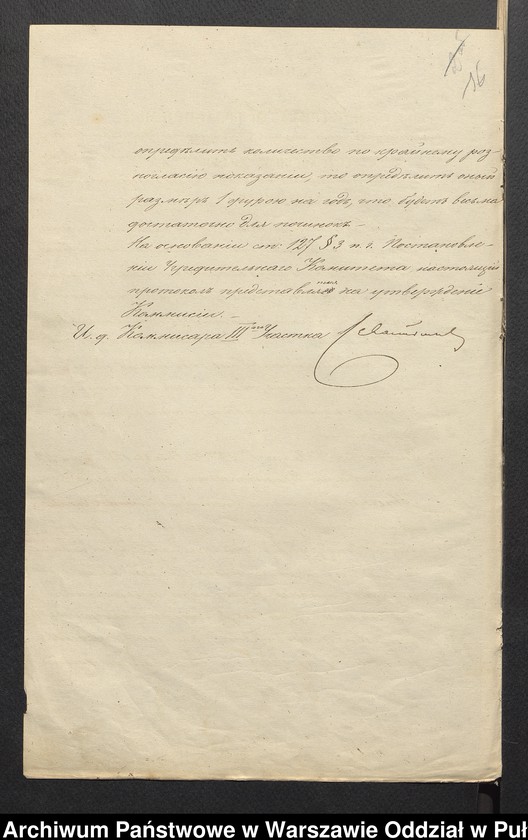 16
опредѣлить количество по крайному роз-
погласію показаній, то опредѣлить оный
размѣръ 1 фурою на годъ, что будетъ весьма
достаточно для починокъ.
На основаніи ст 127 § 3 п. г. Постановле-
нія Учредительнаго Комитета настоящій
протоколъ представляется на утвержденіе
Коммисіи. –
И. д. Коммисара III го Участка
Archiwum Państwowe w Warszawie Oddział w Puł